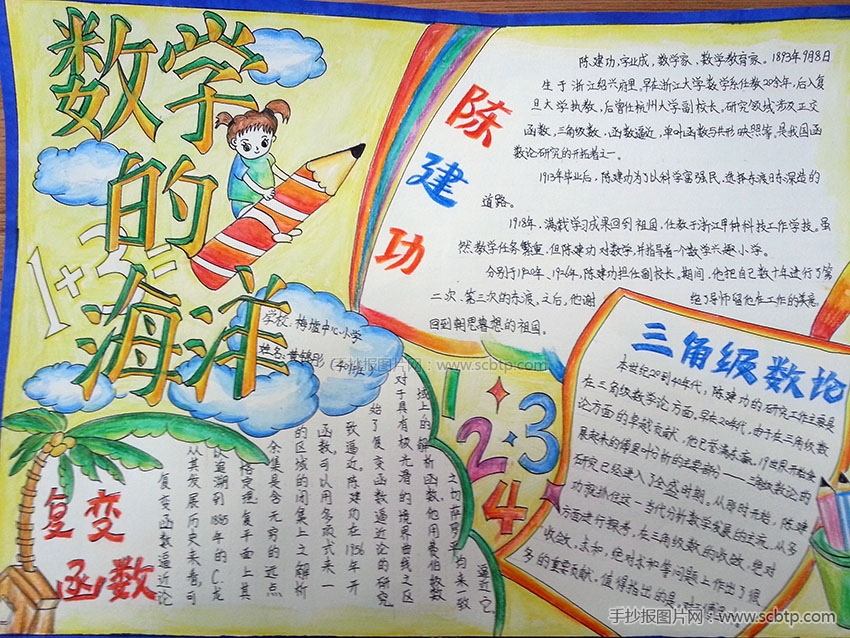 数学
的
海洋
1+2=
学校:梅堰中心小学
手抄报图片网:www.scbtp.com
陈建功
陈建功,字业成,数学家、数学教育家。1893年9月8日
生于浙江绍兴府里。早在浙江大学数学系任教20余年,后入复
旦大学执教,后曾任杭州大学副校长。研究领域涉及正交
函数,三角级数,函数逼近,单叶函数与共形映照等。是我国函
数论研究的开拓者之一。
1913年毕业后,陈建功为了以科学富强民,选择东渡日东深造的
道路。
1918年,满载学习成果回到祖国,任教于浙江甲种科技工作学校。虽
然教学任务繁重,但陈建功对数学,并指导着一个数学兴趣小学。
分别于1920年、1926年,陈建功担任副校长。期间,他把自己数十年进行了第
二次、第三次的东渡。之后,他谢 绝了导师留他在工作的美意,
回到朝思暮想的祖国。
三角级数论
本世纪20到40年代,陈建功的研究工作主要是
在三角级数学论方面。早在20年代,由于在三角级数
论方面的卓越贡献,他已誉满东瀛。19世界开始发
展起来的傅里叶分析的主要部分——三角级数论的
研究已经进入了全盛时期。从那时开始,陈建
功就抓住这一当代分析数学发展的主流,从多
方面进行探考,在三角级数的收敛,绝对
收敛,求和,绝对求和等问题上作出了很
多的重要贡献,值得指出的是,
1 2 3 4
复变
函数
复变函数逼近论
从其发展历史来看,可
以追溯到1885年的C.龙
格定理:复平面上其
余集是含无穷的远点
的区域的闭集上之解析
函数,可以用多项式来一
致逼近。陈建功在1956年开
始了复变函数逼近论的研究
对于具有极光看的境界曲线之区
域上的解析函数,他用费伯级数
之切萨罗平均来一致
逼近它。
手抄报图片网:www.scbtp.com